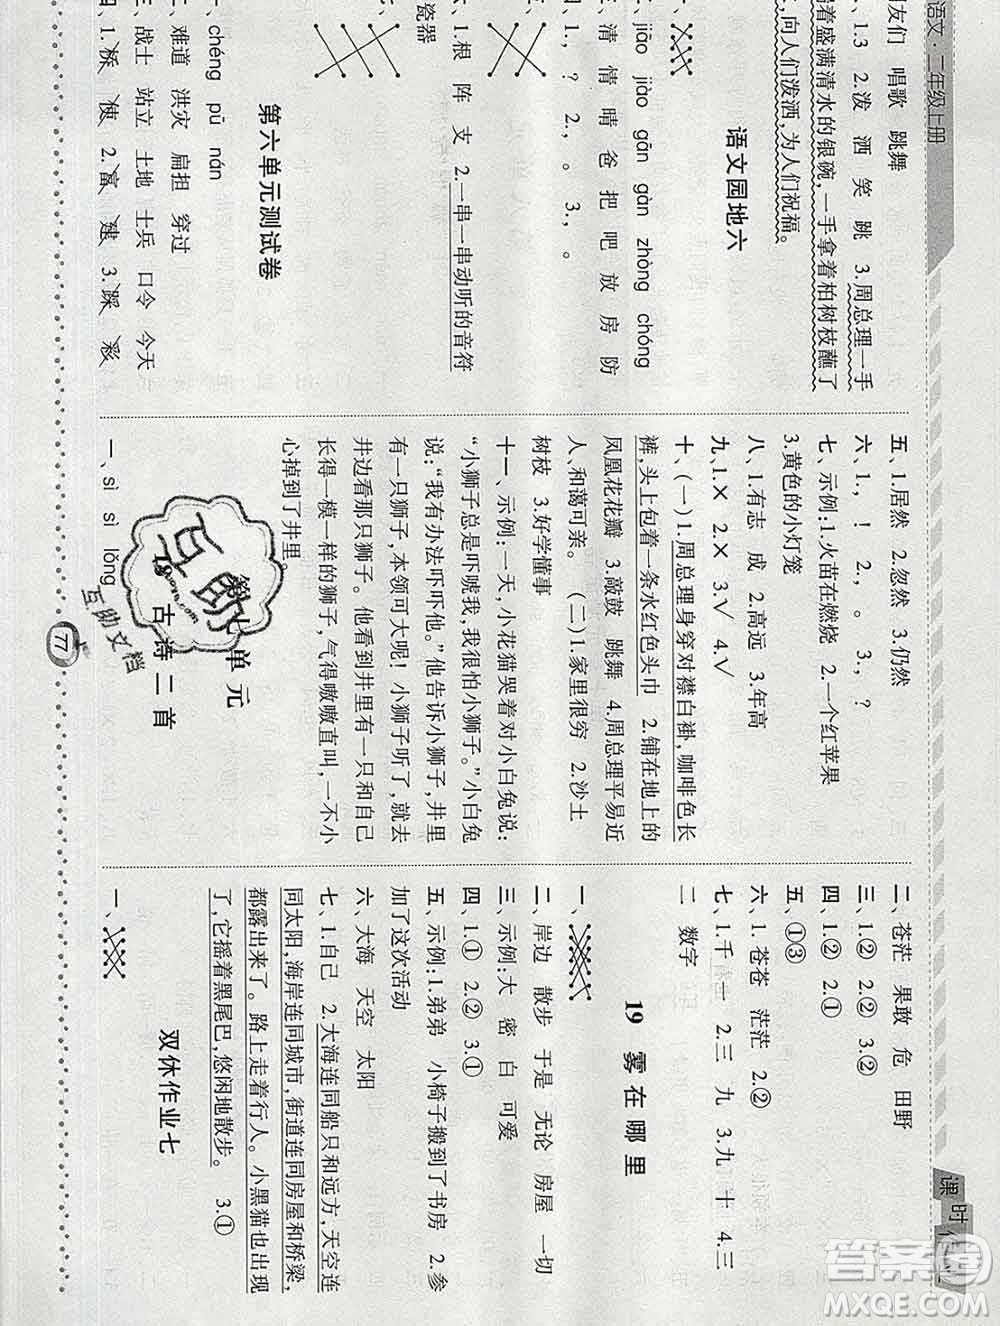 语文·二年级上册
朋友们 唱歌 跳舞
1.3 2.泼 洒 笑 跳 3.周总理一手
端着盛满清水的银碗,一手拿着柏树枝蘸了
水,向人们泼洒,为人们祝福。
语文园地六
一、
二、jiāo jiào gān gàn zhòng chóng
三、清 情 晴 爸 把 吧 放 房 防
四、1., ? 2., 。 3., 。
五、
六、1.根 阵 支 2.一串一串动听的音符
瓷器
第六单元测试卷
一、chéng pū nán
二、难道 洪灾 扁担 穿过
三、战士 站立 土地 士兵 口令 今天
四、1.桥 使 2.富 建 3.踩 彩
五、1.居然 2.忽然 3.仍然
六、1., ! 2., 。 3., ?
七、示例:1.火苗在燃烧 2.一个红苹果
3.黄色的小灯笼
八、1.有志 成 2.高远 3.年高
九、1.× 2.× 3.√ 4.√
十、(一)1.周总理身穿对襟白褂,咖啡色长
裤,头上包着一条水红色头巾 2.铺在地上的
凤凰花花瓣 3.敲鼓 跳舞 4.周总理平易近
人、和蔼可亲。(二)1.家里很穷 2.沙土
树枝 3.好学懂事
十一、示例:一天,小花猫哭着对小白兔说:
“小狮子总是吓唬我,我很怕小狮子。”小白兔
说:“我有办法吓吓他。”他告诉小狮子,井里
有一只狮子,本领可大呢!小狮子听了,就去
井边看那只狮子。他看到井里有一只和自己
长得一模一样的狮子,气得嗷嗷直叫,一不小
心掉到了井里。
第七单元
18 古诗二首
一、sì sì lǒng
二、苍茫 果敢 危 田野
三、1.② 2.① 3.②
四、1.② 2.①
五、①③
六、1.苍苍 茫茫 2.②
七、1.千 一 2.三 九 3.九 十 4.三
二 数字
19 雾在哪里
一、
二、岸边 散步 于是 无论 房屋 一切
三、示例:大 密 白 可爱
四、1.① 2.② 3.①
五、示例:1.弟弟 小椅子搬到了书房 2.参
加了这次活动
六、大海 天空 太阳
七、1.自己 2.大海连同船只和远方,天空连
同太阳,海岸连同城市,街道连同房屋和桥梁,
都露出来了。路上走着行人。小黑猫也出现
了,它摇着黑尾巴,悠闲地散步。 3.①
双休作业七
一、
77
课时作业
互助文档
答案圈
MXQE.COM